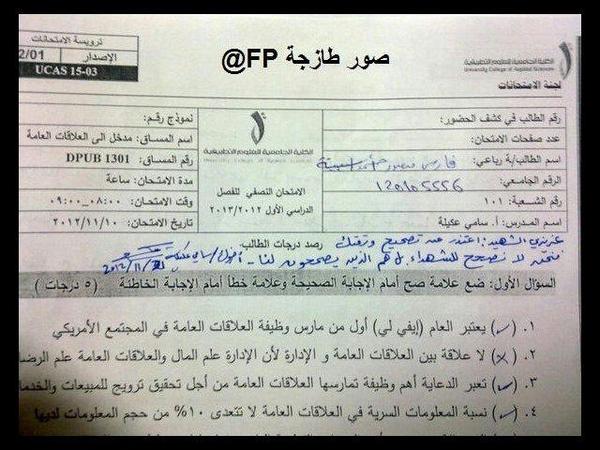 ترويسة الامتحانات
الإصدار
2/01
UCAS 15-03
صور طازجة FP@
الكلية الجامعية للعلوم التطبيقية
University College of Applied Sciences
لجنة الامتحانات
رقم الطالب في كشف الحضور:
عدد صفحات الامتحان:
اسم الطالب/ة رباعي: فارس منصور أحمد
الرقم الجامعي:
رقم الشعبة: ١٠١
اسم المدرس: أ. سامي عكيلة
الكلية الجامعية للعلوم التطبيقية
University College of Applied Sciences
الامتحان النصفي للفصل
الدراسي الأول ٢٠١٢/٢٠١٣
نموذج رقم:
اسم المساق: مدخل الى العلاقات العامة
رقم المساق: DPUB 1301
مدة الامتحان: ساعة
وقت الامتحان: ٠٨:٠٠__٠٩:٠٠
تاريخ الامتحان: ٢٠١٢/١١/١٠
رصد درجات الطالب:
عزيزي الشهيد: اعتذر عن تصحيح ورقتك
فنحن لا نصحح للشهداء بل هم الذين يصححون لنا .. أخوك / سامي عكيلة
السؤال الأول: ضع علامة صح أمام الإجابة الصحيحة وعلامة خطأ أمام الإجابة الخاطئة (٥ درجات)
١. (✓) يعتبر العام (إيفي لي) أول من مارس وظيفة العلاقات العامة في المجتمع الأمريكي
٢. (×) لا علاقة بين العلاقات العامة و الإدارة لأن الإدارة علم المال والعلاقات العامة علم الرضا
٣. (✓) تعبر الدعاية أهم وظيفة تمارسها العلاقات العامة من أجل تحقيق ترويج للمبيعات والخدما
٤. (✓) نسبة المعلومات السرية في العلاقات العامة لا تتعدى ١٠% من حجم المعلومات لديها